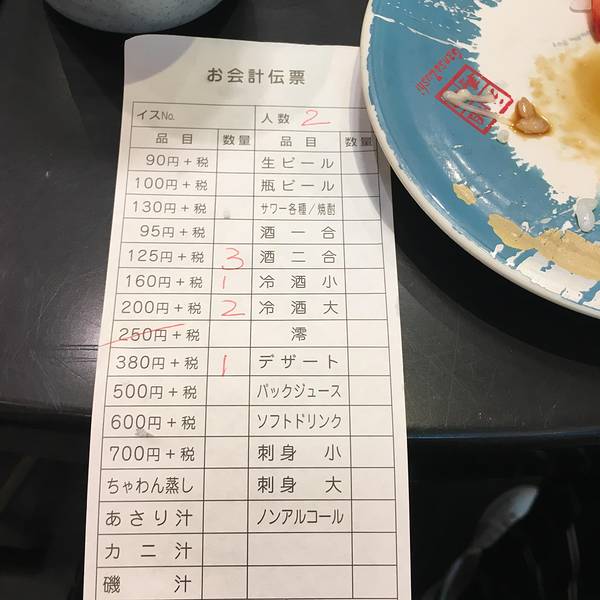 お会計伝票
イスNo. 人数 2
品目 数量 品目 数量
90円+税 生ビール
100円+税 瓶ビール
130円+税 サワー各種/焼酎
95円+税 酒一合
125円+税 3 酒二合
160円+税 1 冷酒小
200円+税 2 冷酒大
250円+税 澪
380円+税 1 デザート
500円+税 パックジュース
600円+税 ソフトドリンク
700円+税 刺身 小
ちゃわん蒸し 刺身 大
あさり汁 ノンアルコール
カニ汁
磯汁